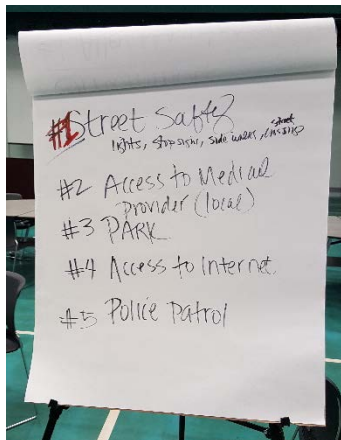 #1 Street Safty
lights, stop signs, side walks, street crossings
#2 Access to Medical
provider (local)
#3 PARK
#4 Access to Internet.
#5 Police Patrol